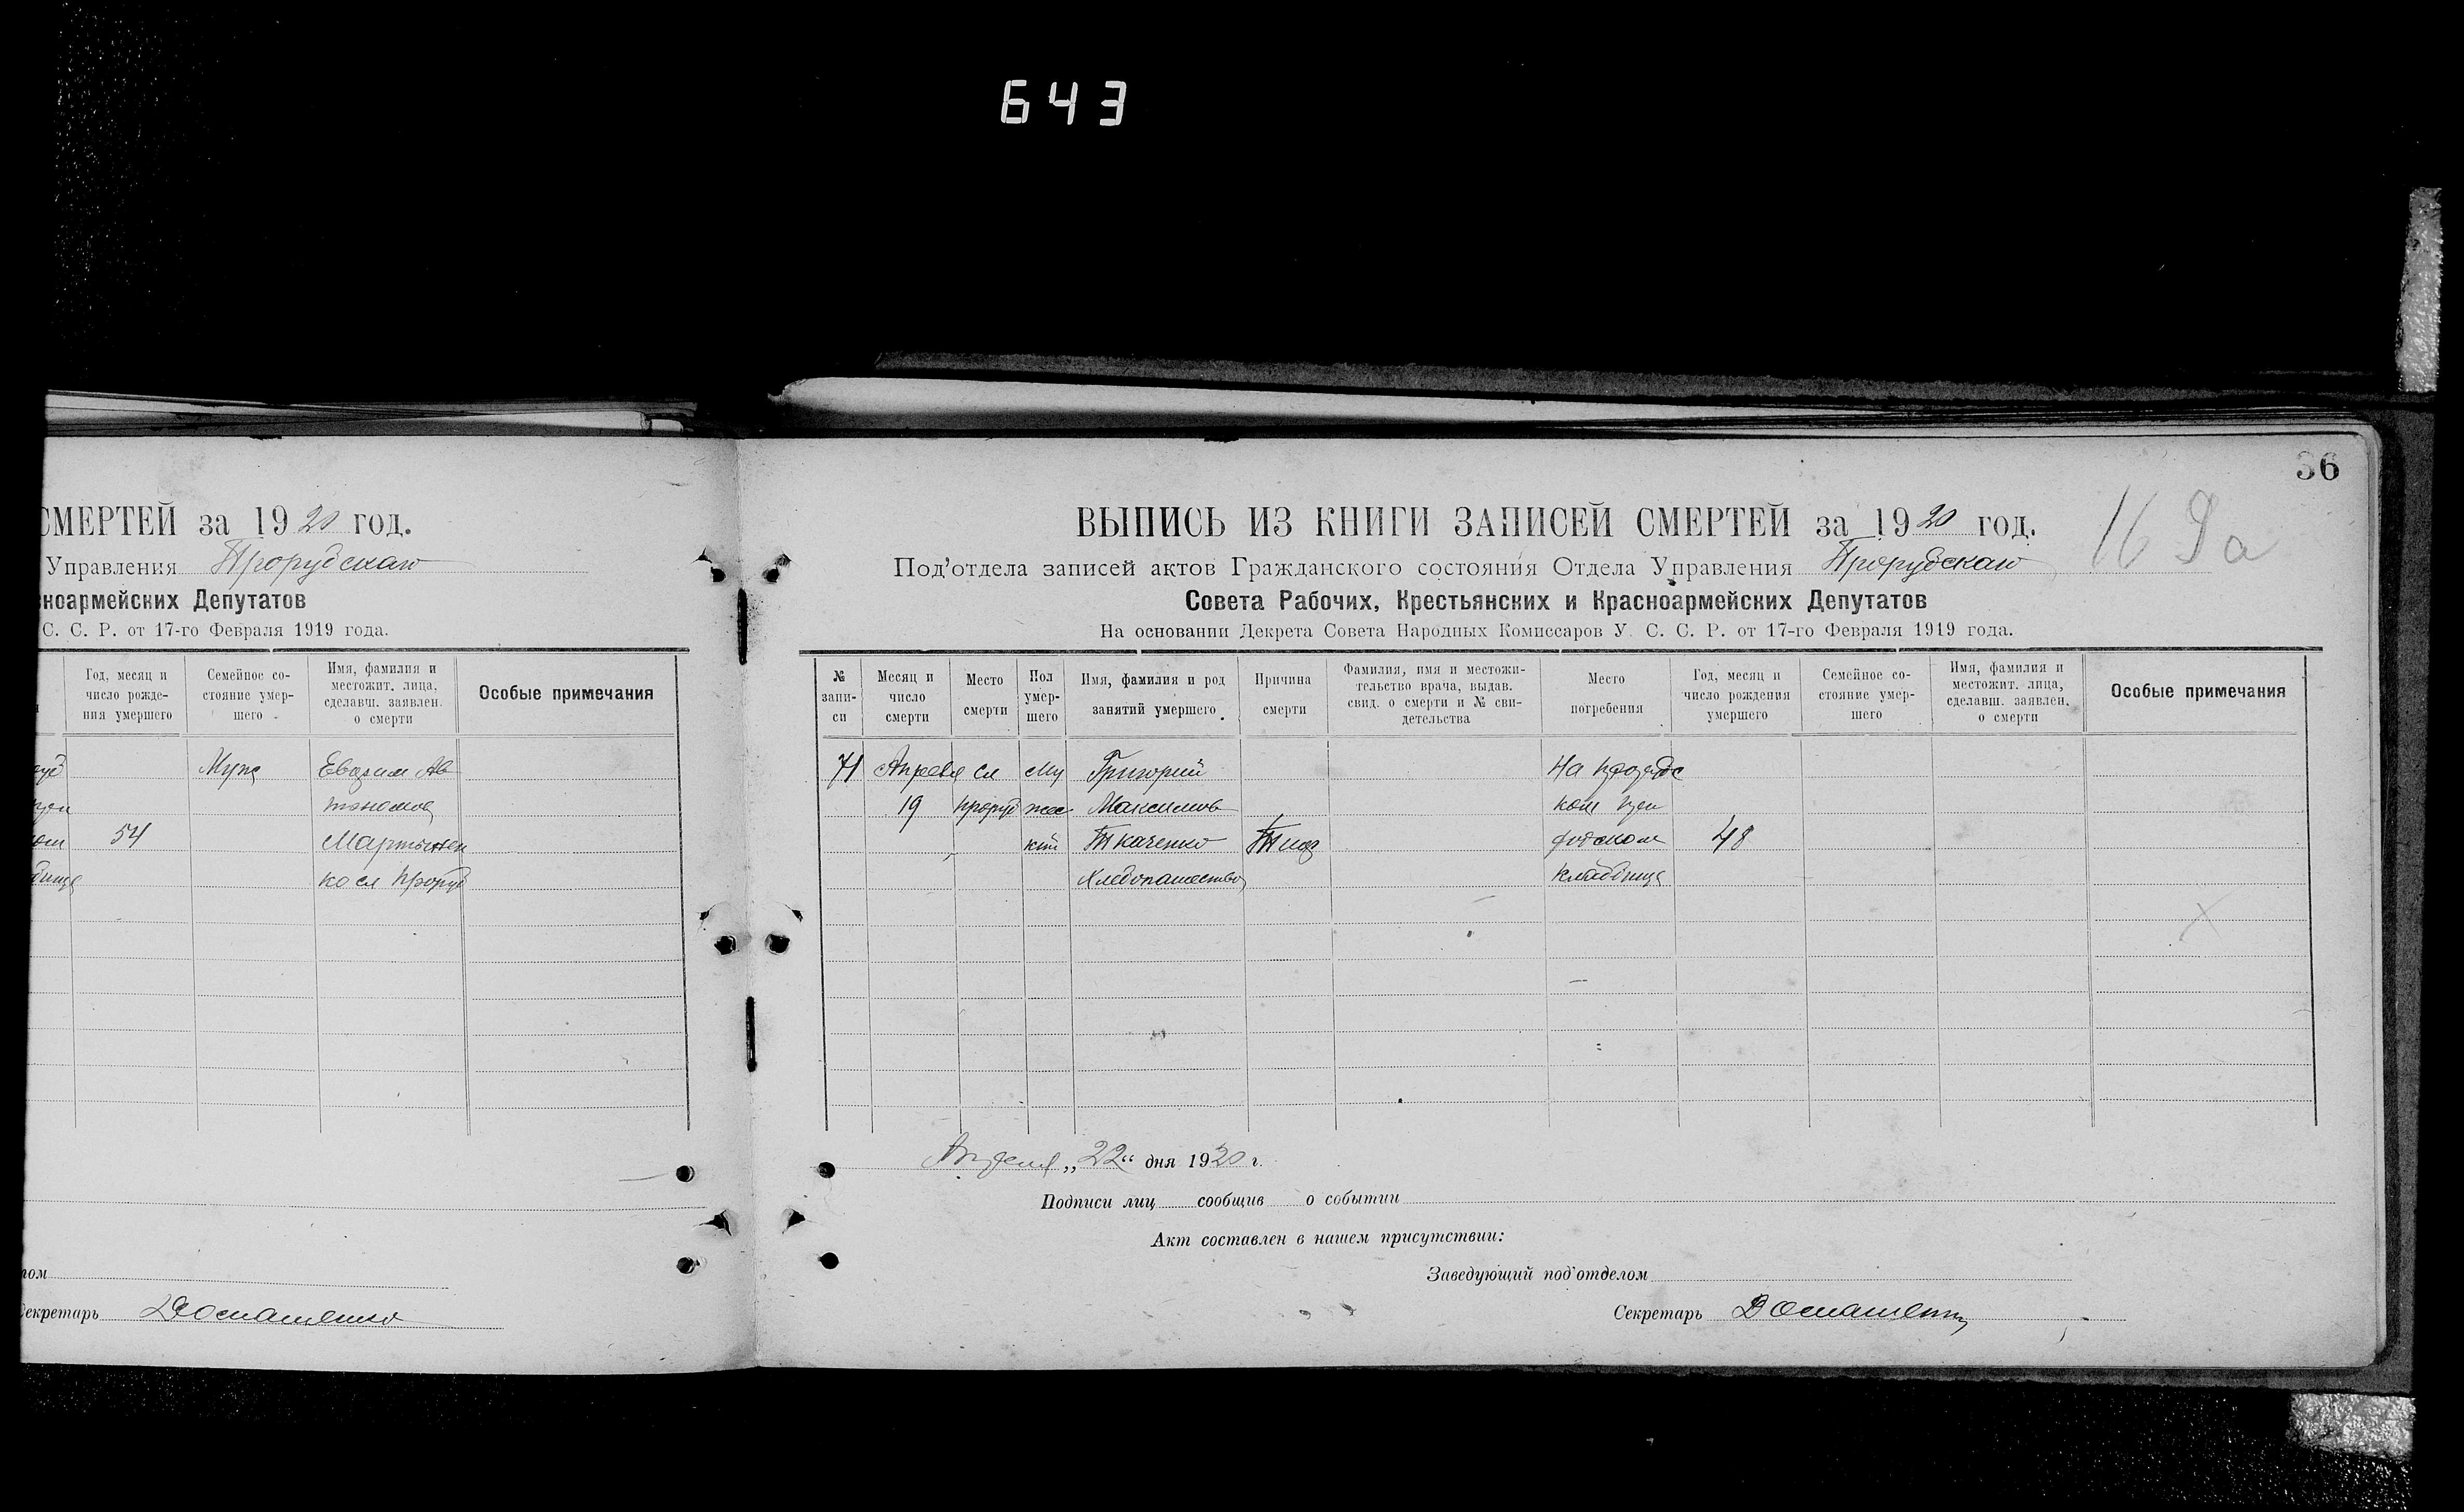 643
СМЕРТЕЙ за 1920 год.
Управления Прорубскаго
сноармейских Депутатов
С. С. Р. от 17-го Февраля 1919 года.
Год, месяц и число рожде- ния умершего
Семейное со- стояние умер- шего
Имя, фамилия и местожит. лица, сделавш. заявлен. о смерти
Особые примечания
Мужа
54
Мартынен
ко сл Проруб
Секретарь
36
ВЫПИСЬ ИЗ КНИГИ ЗАПИСЕЙ СМЕРТЕЙ за 1920 год.
16
Под'отдела записей актов Гражданского состояния Отдела Управления Прорубскаго
Совета Рабочих, Крестьянских и Красноармейских Депутатов
На основании Декрета Совета Народных Комиссаров У. С. С. Р. от 17-го Февраля 1919 года.
№ запи- си
Месяц и число смерти
Место смерти
Пол умер- шего
Имя, фамилия и род занятий умершего
Причина смерти
Фамилия, имя и местожи- тельство врача, выдав. свид. о смерти и № сви- детельства
Место погребения
Год, месяц и число рождения умершего
Семейное со- стояние умер- шего
Имя, фамилия и местожит. лица, сделавш. заявлен. о смерти
Особые примечания
71 Апреля сл Му Григорий На
19 Проруб жес Максимов ком
кий Ткаченко Тиф 48
Хлебопашество кладбище
Апреля „22“ дня 1920 г.
Подписи лиц сообщив о событии
Акт составлен в нашем присутствии:
Заведующий под'отделом
Секретарь